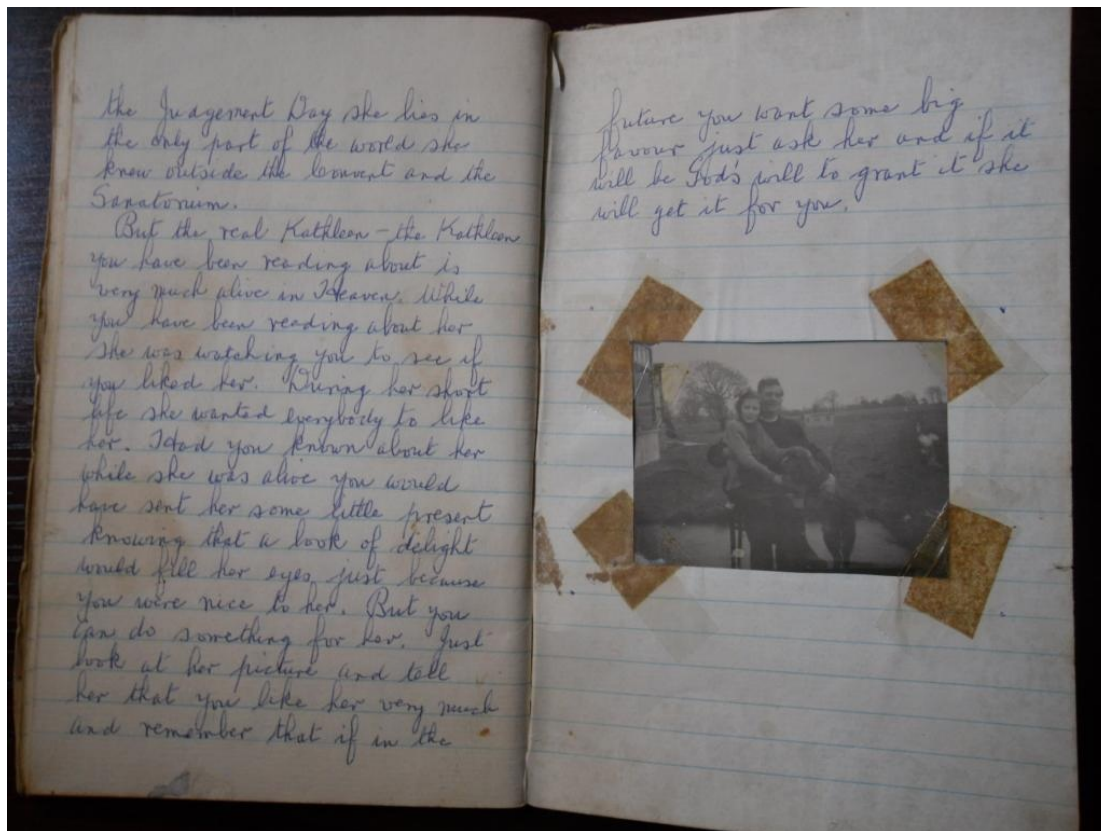 the Judgement Day she lies in
the only part of the world she
knew outside the Convent and the
Sanatorium.
But the real Kathleen - the Kathleen
you have been reading about is
very much alive in Heaven. While
you have been reading about her
she was watching you to see if
you liked her. During her short
life she wanted everybody to like
her. Had you known about her
while she was alive you would
have sent her some little present
knowing that a look of delight
would fill her eyes just because
you were nice to her. But you
can do something for her. Just
look at her picture and tell
her that you like her very much
and remember that if in the
future you want some big
favour just ask her and if it
will be God's will to grant it she
will get it for you.